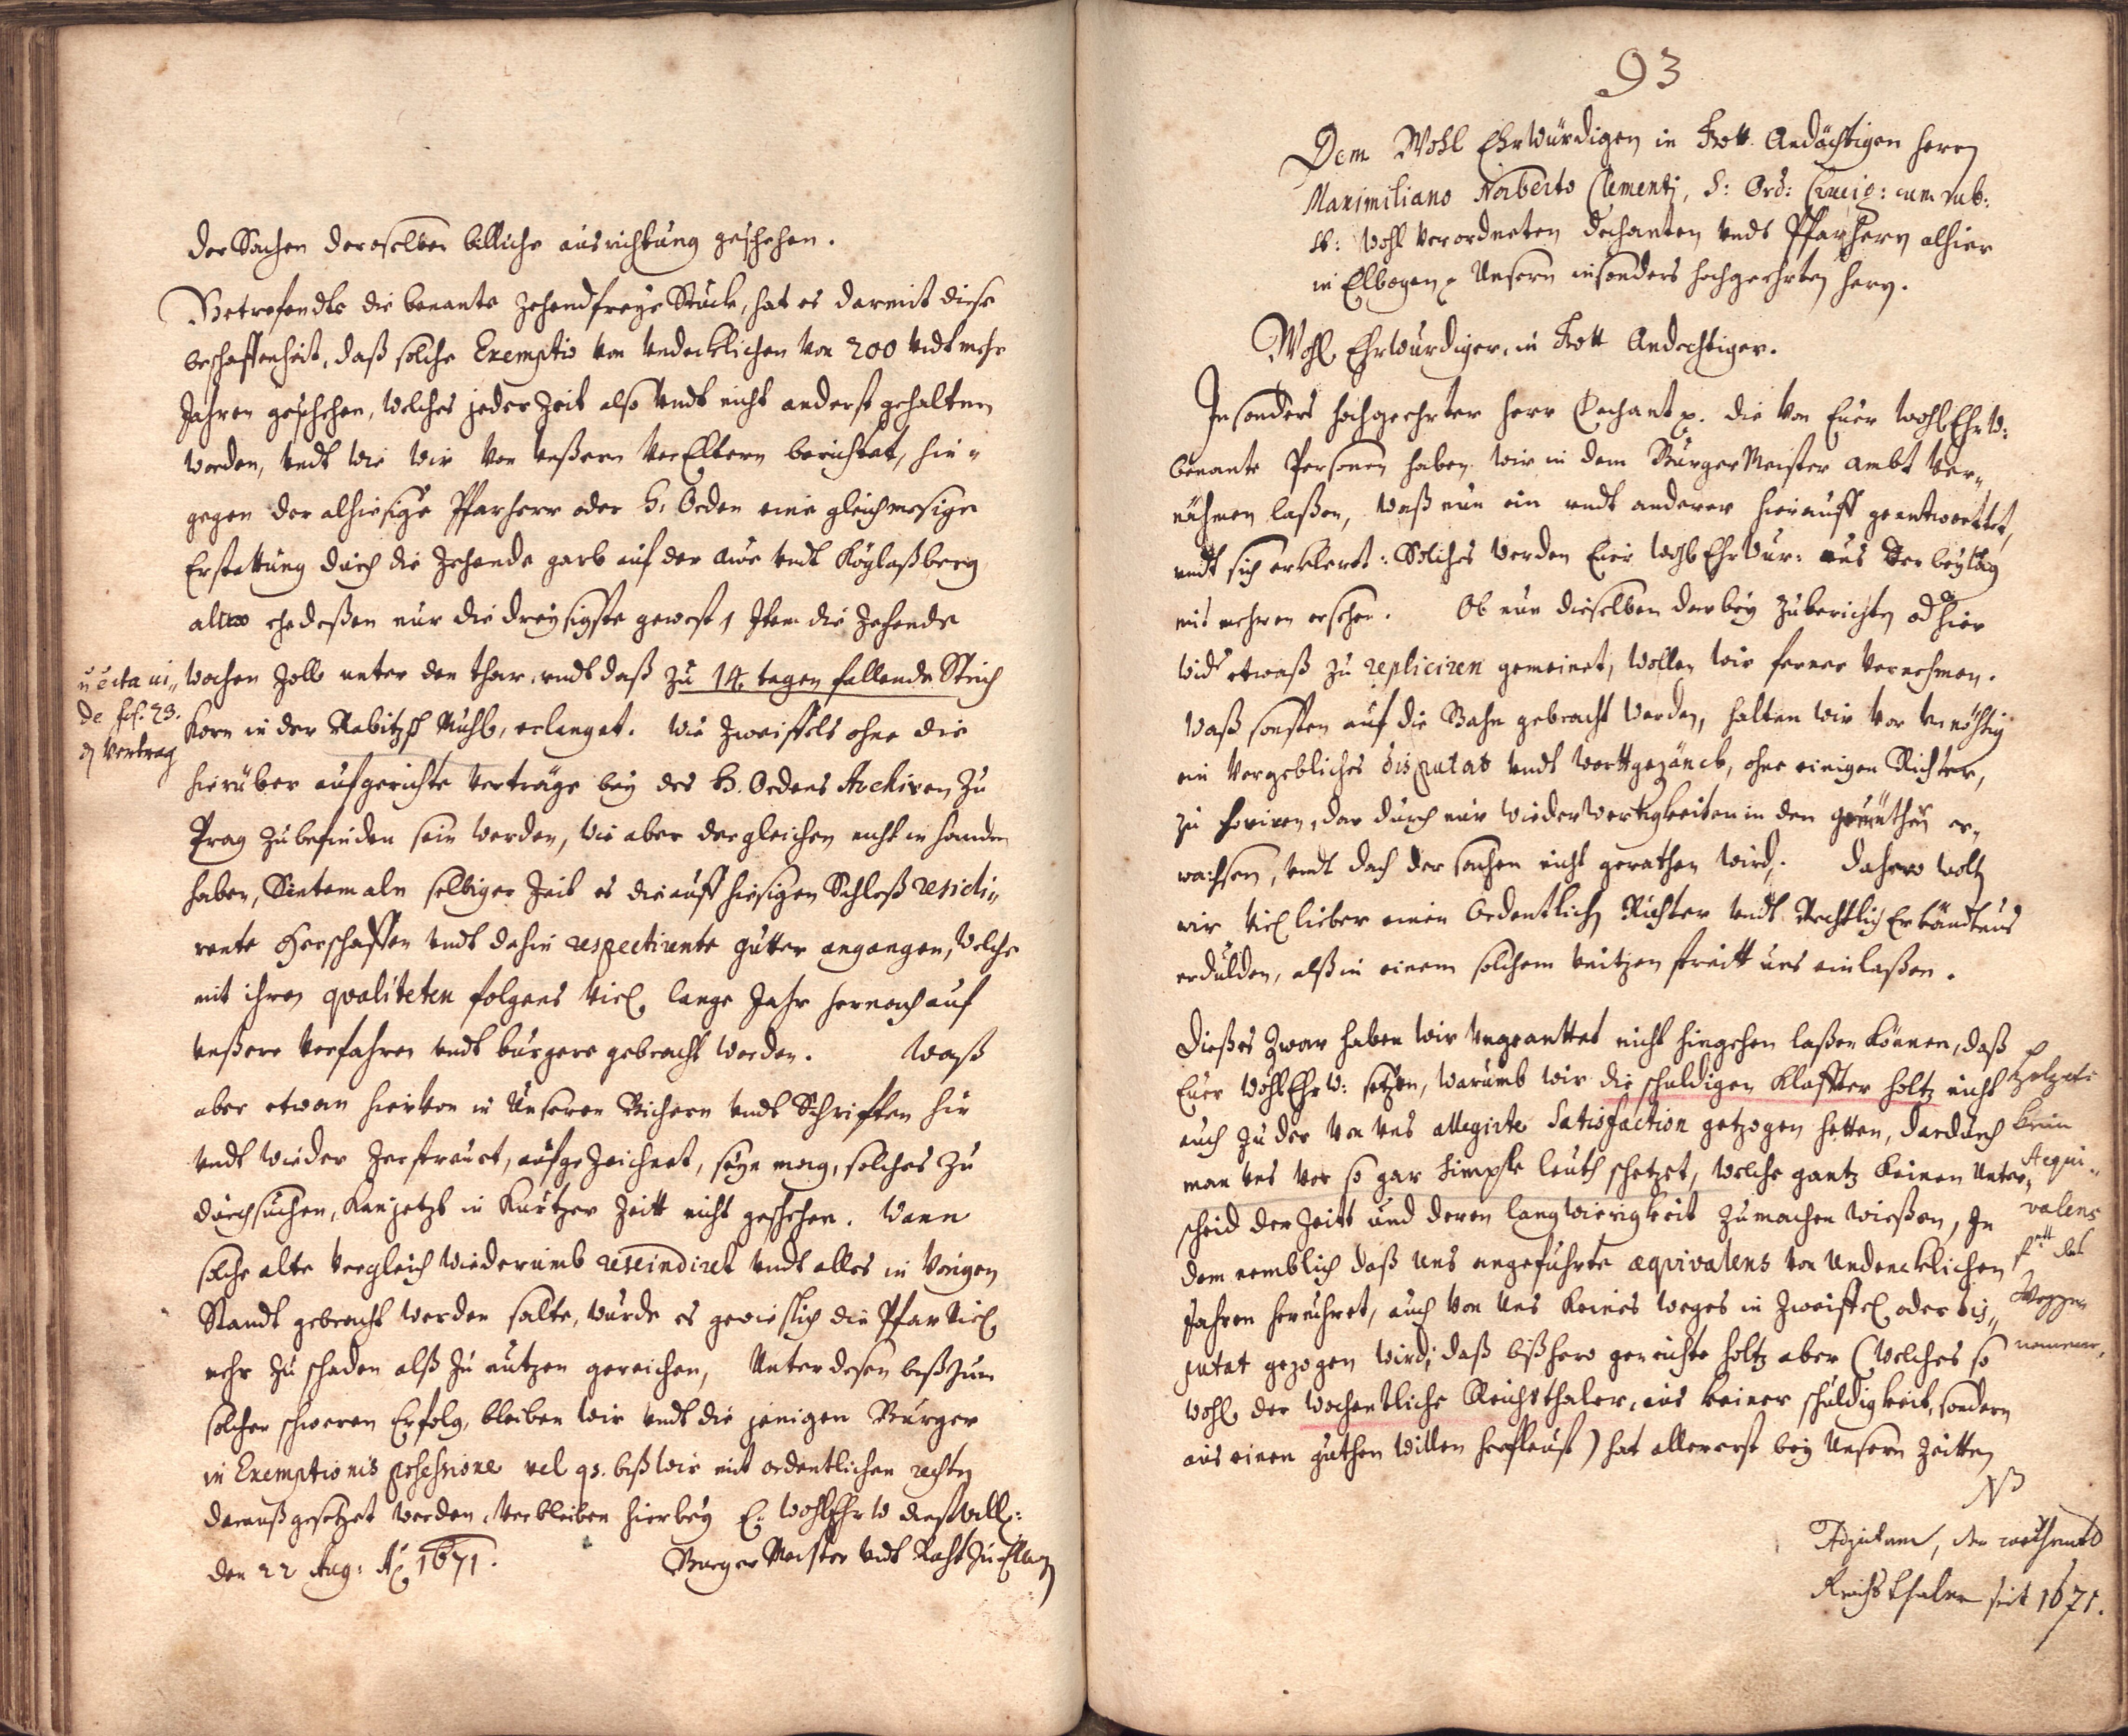 der Sachen deroselben billiche ausrichtung geschehen.
Betrefendte die benante zehendfreye Stuck, hat es darmit diese
beschaffenheit, daß solche Exemptio von undencklichen von 200 undt mehr
Jahren geschehen, welches jeder Zeit also undt nicht anderst gehalten
worden, undt wie wir von unßern VorEltern berichtet, hin„
gegen der alhiesige Pfarherr oder H. Orden eine gleichmesige
Erstattung durch die Zehende garb auf der awe undt Köglaßberg
alwo ehedeßen nur die dreysigste gewest, Item die Zehende
wochen Zoll unter den thor, undt daß zu 14. tagen fallende Strich
Korn in der Rabitzsch Muhl, erlanget. Wie Zweiffels ohne die
hierüber aufgerichte Verträge bey des H. Ordens Archiven zu
Prag zubefinden sein werden, wie aber dergleichen nicht in handen
haben, Sintemaln selbiger Zeit es die auff hiesigen Schloß residi„
rente Herschafften undt dahin respectirente gütter angangen, welche
mit ihren qvaliteten folgens viel lange Jahr hernach auf
unßere Vorfahren undt burgere gebracht worden. Waß
aber etwan hiervon in Unseren Büchern undt Schrifften hin
undt wieder zerstreuet, aufgezeichnet, seyn mag, solches zu
durchsuchen, kan jetzt in kurtzer Zeitt nicht geschehen. Wann
solche alte Vergleich wiederumb rescindiret undt alles in vorigen
Standt gebracht werden solte, wurde es gewießlich die Pfar viel
mehr zu schaden alß zu nutzen gereichen, Unterdesen biß zum
solchen schweren Erfolg, bleiben wir undt die jenigen Burger
in Exemptionis possessione vel qs. biß wir mit ordentlichen rechten
darauß gesetzet werden, verbleiben hierbey E: WohlEhrw dienstwill:
den 22 Aug: Aō 1671. Burger Meister undt Raht zu Elbogen
vi„
de fol. 23.
Vertrag
93
Dem Wohl Ehrwürdigen in Gott Andächtigen herrn
Maximiliano Norberto Clementi, S: Ord: Crucig: cum rub:
St: wohl verordneten Dechanten undt Pfarherrn alhier
in Elbogen, Unsern insonders hochgeehrten herrn.
Wohl Ehrwürdiger, in Gott Andechtiger.
Insonders hochgeehrter Herr Dechant p. die von Euer wohlEhrw:
benante Personen haben wir in dem BurgerMeister ambt ver„
nähmen laßen, waß nun ein undt anderer hierauff geantworttet,
undt sich erkleret: Solches werden Euer WohlEhrwur: aus der beylag
mit mehren ersehen. Ob nun dieselben darbey zuberichten od hier
wider etwaß zu repliciren gemeinet, wollen wir ferner vernehmen.
Waß sonsten auf die Bahn gebracht worden, halten wir vor unnöhtig
ein vergebliches disputat undt worttgezänck, ohne einigen Richter,
zu foviren, dar durch nur wiederwertigkeiten in den gemüthern er„
wachsen, undt doch der sachen nicht gerathen wird. Dahero woltn
wir viel lieber einen Ordentlich Richter undt Rechtlich Erkändtnus
erdulden, alß in einem solchem unützen streitt uns einlaßen.
Dießes zwar haben wir ungeanttet nicht hingehen laßen können, daß
Euer WohlEhrw: setzen, warumb wir die schuldigen Klaffter holtz nicht
auch zu der von uns allegirte Satisfaction getzogen hetten, dardurch
man uns vor so gar simple leuth schetzet, welche gantz keinen Unter„
scheid der Zeitt und deren langwierigkeit zumachen wießen, In
dem nemblich daß uns angeführte æqvivalens von Undencklichen
Jahren heruhret, auch von Uns keines weges in Zweiffel oder dis„
putat gezogen wird, daß bißhero gereichte holtz aber (welches so
wohl der wochentliche Reichsthaler, aus keiner schuldigkeit, sondern
aus einen guthen willen herfleust) hat allererst bey Unsern Zeitten
holz
kein
Aequi„
valens
NB
Reichsthaler seit 1671.